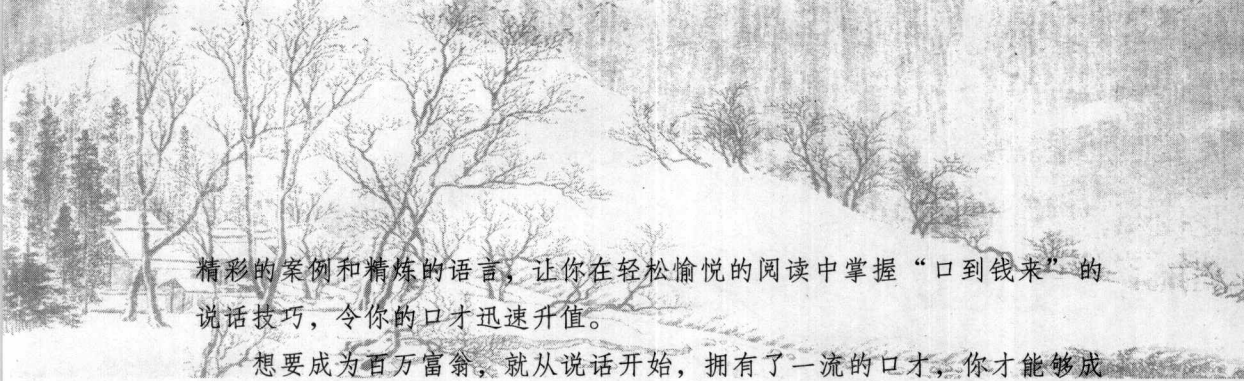 精彩的案例和精炼的语言，让你在轻松愉悦的阅读中掌握“口到钱来”的
说话技巧，令你的口才迅速升值。
想要成为百万富翁，就从说话开始，拥有了一流的口才，你才能够成